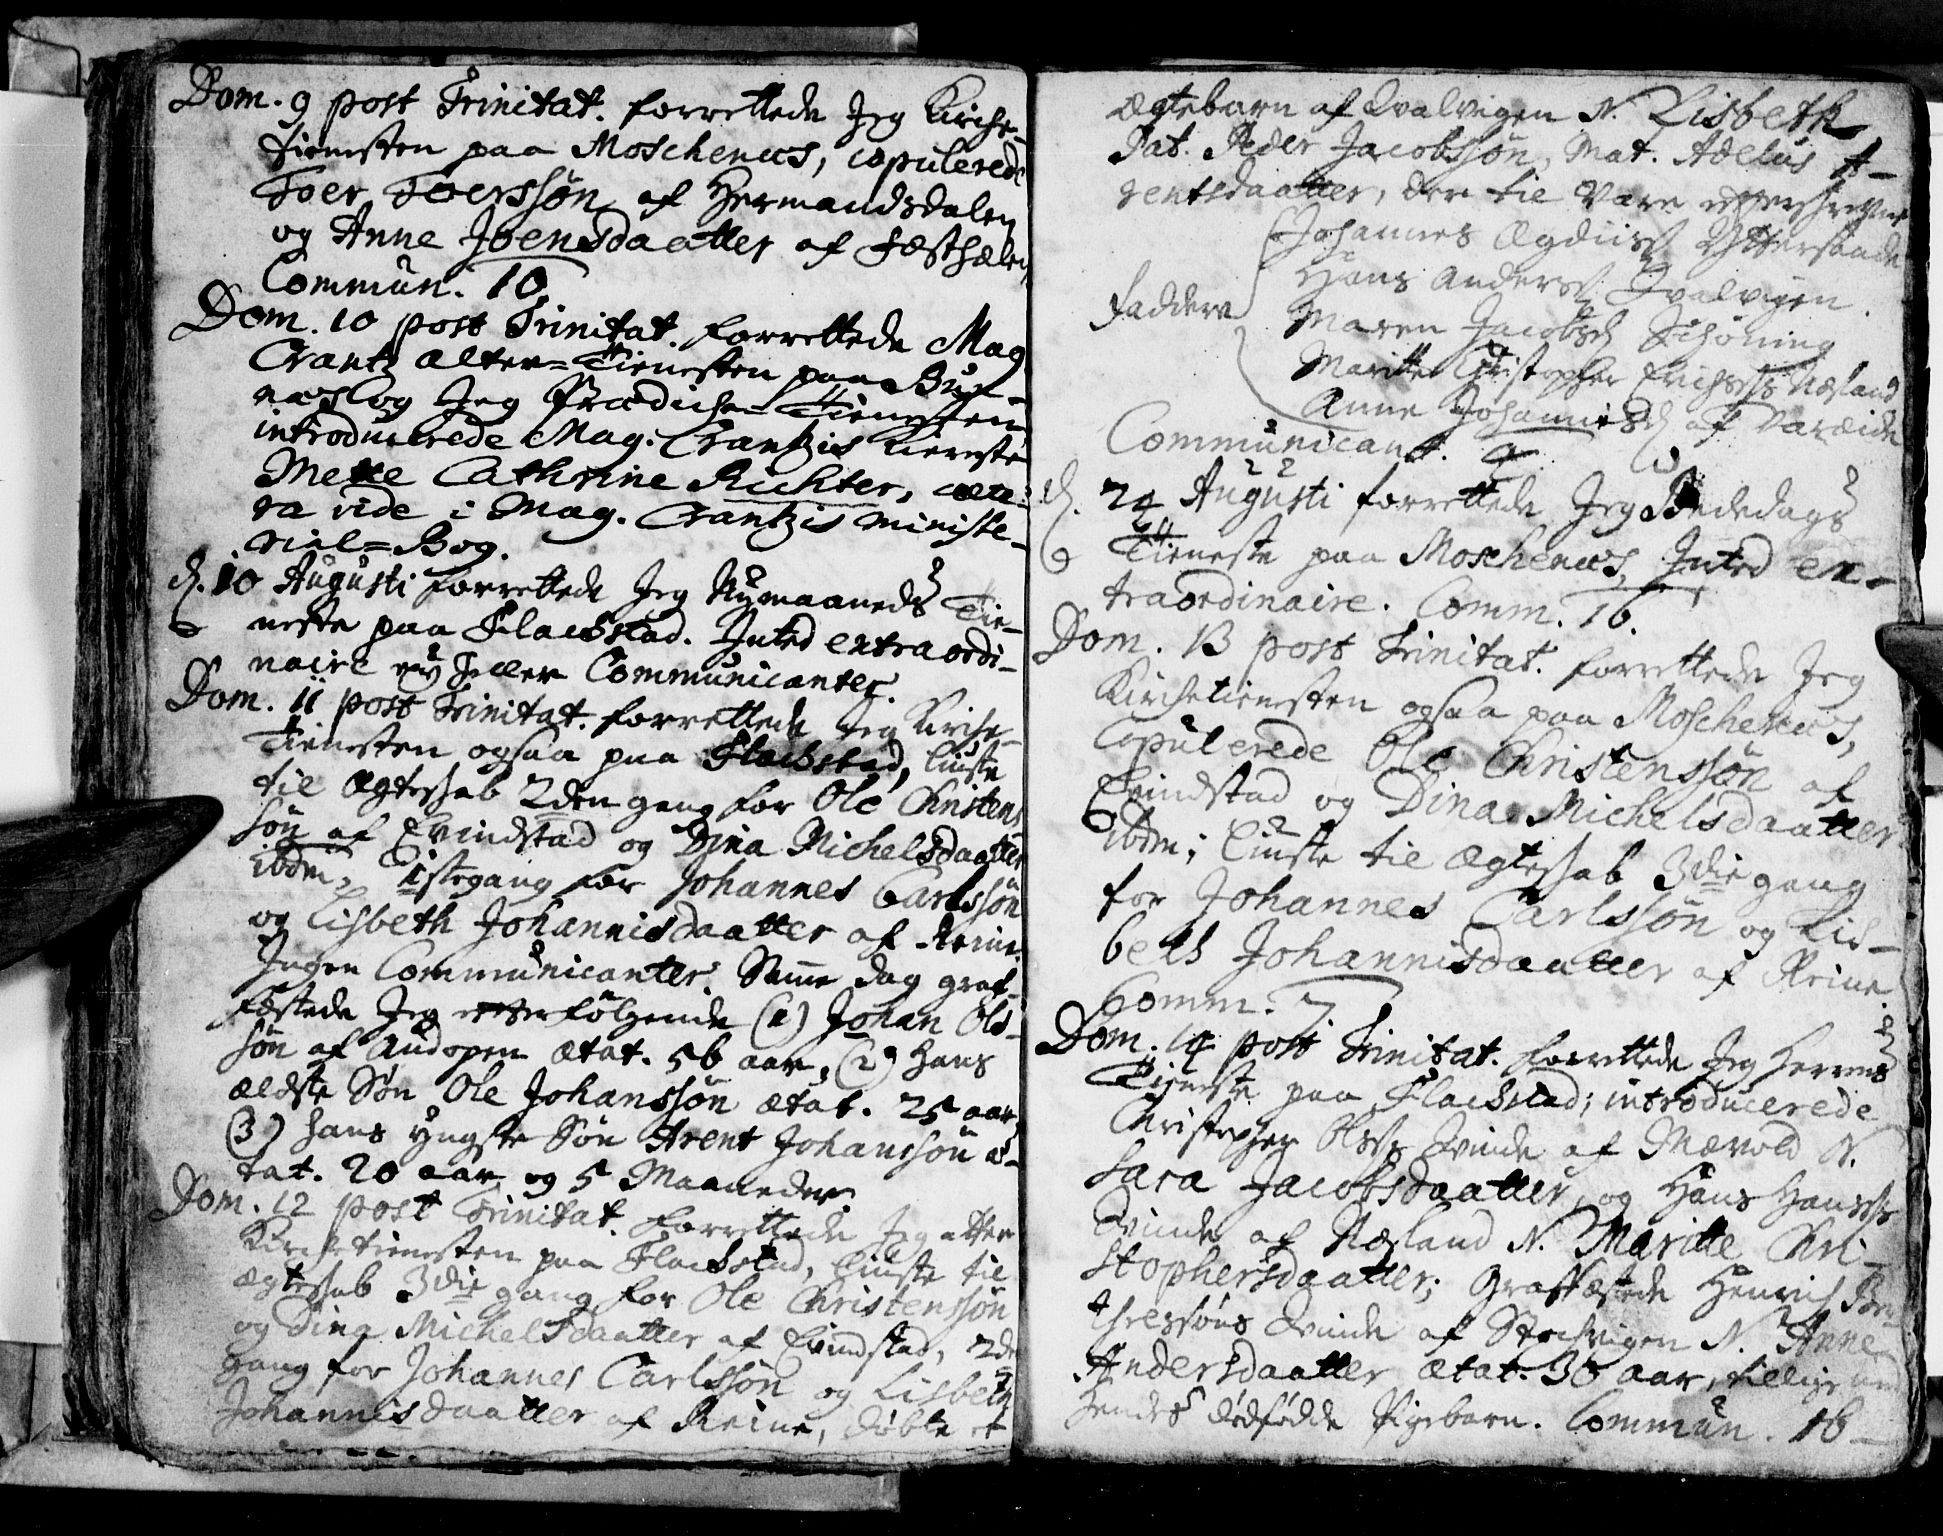 Dom. 9 post Trinitat. forrettede Jeg Kirche-
tienesten paa Moschenæs, copulerede
Toer Toerssøn af Hermandsdalen
og Anne Joensdaatter af Festhælen
Commun. 10.
Dom. 10 post Trinitat. forrettede Mag
Crantz Alter-Tienesten paa Bux-
næs og Jeg Prædiche-Tienesten
introducerede Mag. Crantzis Kiereste
Mette Cathrine Richter, cæte-
ra vide i Mag. Crantzis Ministe-
rial-Bog.
d. 10 Augusti forrettede Jeg Nymaaneds Tie-
neste paa Flackstad. Inted extraordi-
naire ey heller Communicanter.
Dom. 11 post Trinitat. forrettede Jeg Kirche-
Tienesten ogsaa paa Flackstad, liuste
til Ægteskab 2den gang for Ole Christens
søn af Evindstad og Dina Michelsdaatter
ibdm, 1ste gang for Johannes Carlssøn
og Lisbeth Johannisdaatter af Reine.
Ingen Communicanter. Samme dag graf-
festede Jeg efterfølgende (1) Johan Ols-
søn af Andopen ætat. 56 aar, (2) hans
ældste Søn Ole Johanssøn ætat. 25 aar,
(3) hans yngste Søn Arent Johanssøn æ-
tat. 20 aar og 5 Maaneder.
Dom. 12 post Trinitat. forrettede Jeg atter
Kirchetienesten paa Flackstad, liuste til
Ægteskab 3die gang for Ole Christenssøn
og Dina Michelsdaatter af Evindstad, 2de
gang for Johannes Carlssøn og Lisbeth
Johannisdaatter af Reine, døbte et
Ægtebarn af Qvalvigen N. Lisbeth
Pat. Peder Jacobssøn, Mat. Adelus A-
rentsdaatter, der til vare efterskrevne
Johannes Ægdiiss. Yttersande
Hans Anderss. Qvalvigen.
Faddere Maren Jacobsd. Schøning
Maritte Christopher Erichss. Næsland
Anne Johannisd. af Vareide
Communicant. 9
d. 24 Augusti forrettede Jeg Bededags
Tieneste paa Moschenæs, Inted ex-
traordinaire. Comm. 16.
Dom. 13 post Trinitat. forrettede Jeg
Kirchetienesten ogsaa paa Moschenæs,
Copulerede Ole Christenssøn af
Evindstad og Dina Michelsdaatter
ibdm; liuste til Ægteskab 3die gang
for Johannes Carlssøn og Lis-
beth Johannisdaatter af Reine.
Comm. 7
Dom. 14 post Trinitat. forrettede Jeg Herrens
Tieneste paa Flackstad; introducerede
Christopher Olss. Qvinde af Mærvold N.
Sara Jacobsdaatter, og Hans Hanss.
Qvinde af Næsland N. Maritte Chri-
stophersdaatter; Graffestede Henrich Be-
thressøns Qvinde af Strchvigen N. Anne
Andersdaatter ætat. 36 aar, tillige med
hendes dødfødde Pigebarn. Commun. 16